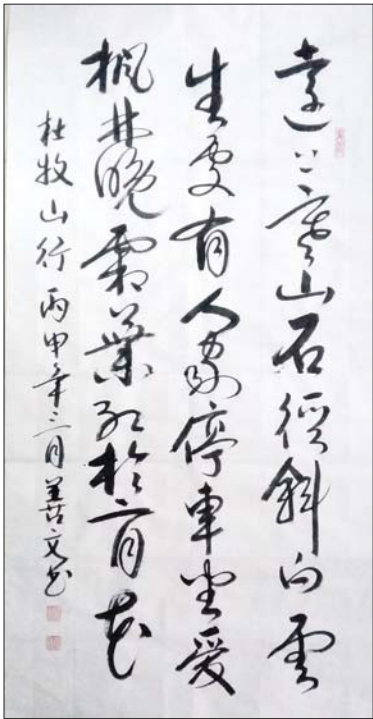 遠上寒山石徑斜白雲
生處有人家停車坐愛
楓林晚霜葉紅於二月花
杜牧山行丙申年三月善文书